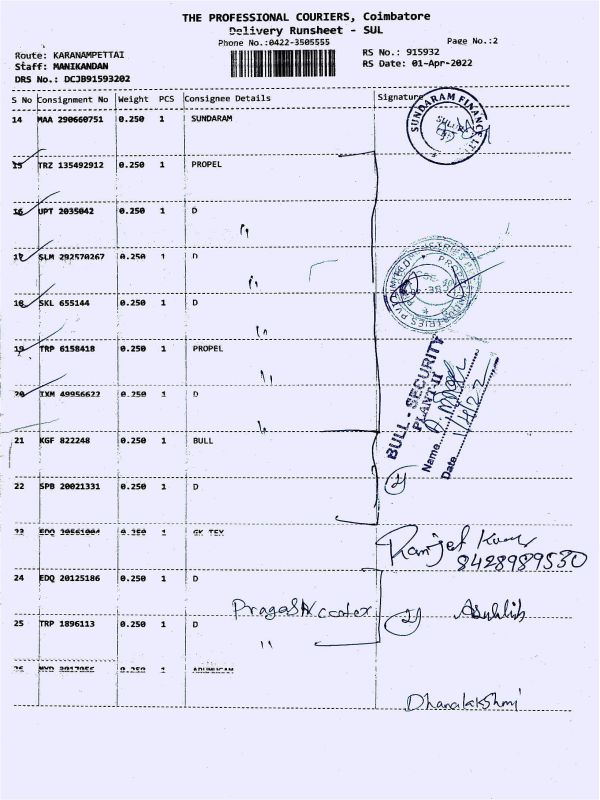 THE PROFESSIONAL COURIERS, Coimbatore
Delivery Runsheet - SUL
Phone No.:0422-3505555 Page No.:2
Route: KARANAMPETTAI RS No.: 915932
Staff: MANIKANDAN RS Date: 01-Apr-2022
DRS No.: DCJB91593202
S No Consignment No Weight PCS Consignee Details Signature
14 MAA 290660751 0.250 1 SUNDARAM
SUNDARAM FINANCE LTD
15 TRZ 135492912 0.250 1 PROPEL
16 UPT 2035042 0.250 1 D
"
17 SLM 292570267 0.250 1 D
"
18 SKL 655144 0.250 1 D
"
19 TRP 6158418 0.250 1 PROPEL
"
20 IXM 49956622 0.250 1 D
"
BULL - SECURITY
PLANT-II
Name
Date 1/4/22
21 KGF 822248 0.250 1 BULL
22 SPB 20021331 0.250 1 D
23 EDQ 0.250 1 GK TEX
8428989530
24 EDQ 20125186 0.250 1 D
25 TRP 1896113 0.250 1 D
"
26 0.250 1 ARUMUGAM
Dhanalakshmi